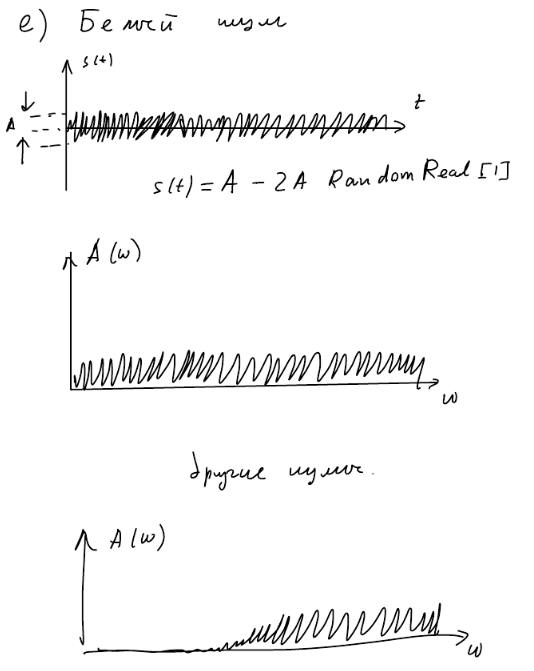 е) Белый шум
s(t)
t
A
s(t) = A - 2A RandomReal[1]
A(ω)
ω
другие шумы.
A(ω)
ω